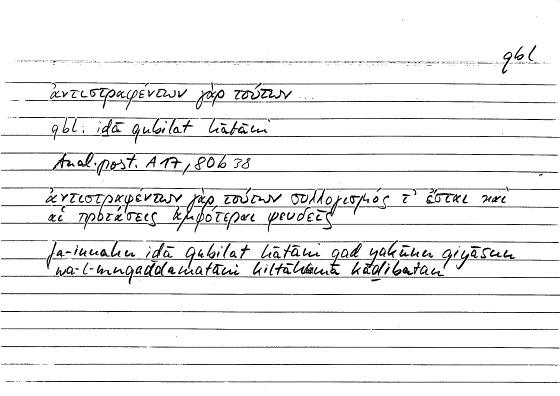 qbl
ἀντιστραφέντων γὰρ τούτων ...
qbl. iḏā qubilat hātāni
Anal. post. A 17, 80b38
ἀντιστραφέντων γὰρ τούτων συλλογισμός τ' ἔσται καὶ
αἱ προτάσεις ἀμφότεραι ψευδεῖς
fa-innahu iḏā qubilat hātāni qad yakūnu qiyāsun
wa-l-muqaddamatāni kiltāhumā kāḏibatan